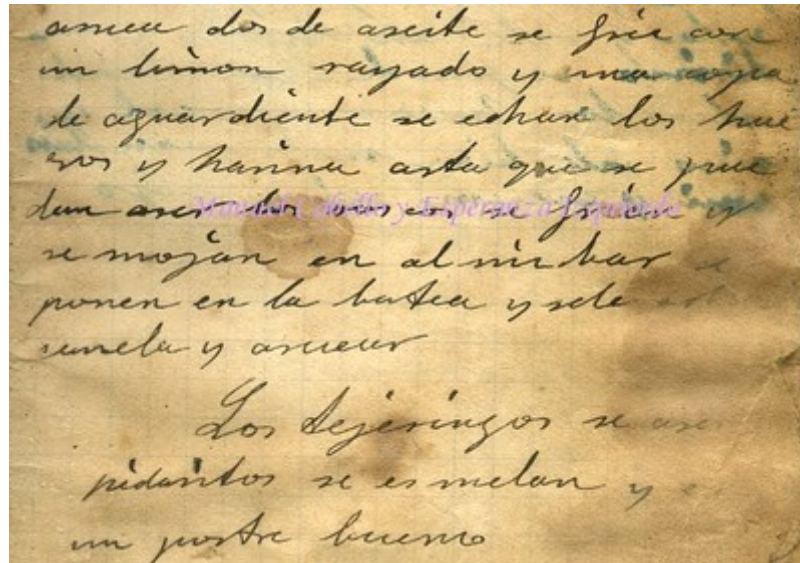 dos de aseite se frie con
un limon rayado y una copa
de aguardiente se echan los hue
vos y harina asta que se pue
dan aser los roscos se frien y
se mojan en almibar se
ponen en la batea y sele
canela y asucar
Los tejeringos se aser
pedasitos se esmelan y es
un postre bueno